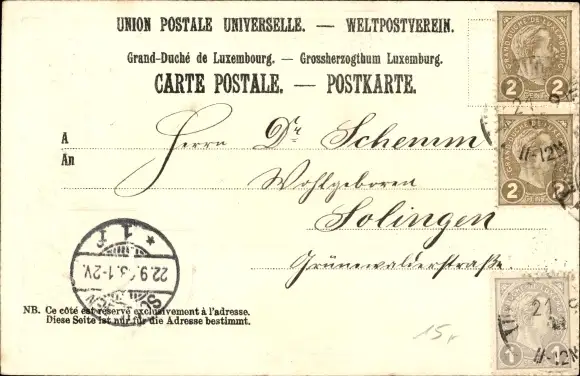 UNION POSTALE UNIVERSELLE. — WELTPOSTVEREIN.
Grand-Duché de Luxembourg. — Grossherzogthum Luxemburg.
CARTE POSTALE. — POSTKARTE.
A
An
Herrn Dr Schemm
Wohlgeboren
Solingen
Grünewalderstraße.
NB. Ce côté est réservé exclusivement à l'adresse.
Diese Seite ist nur für die Adresse bestimmt.
15,
2 2
11-12N
2 2
* 1 f
22.9. 1-2V.
21
11-12N
1 1